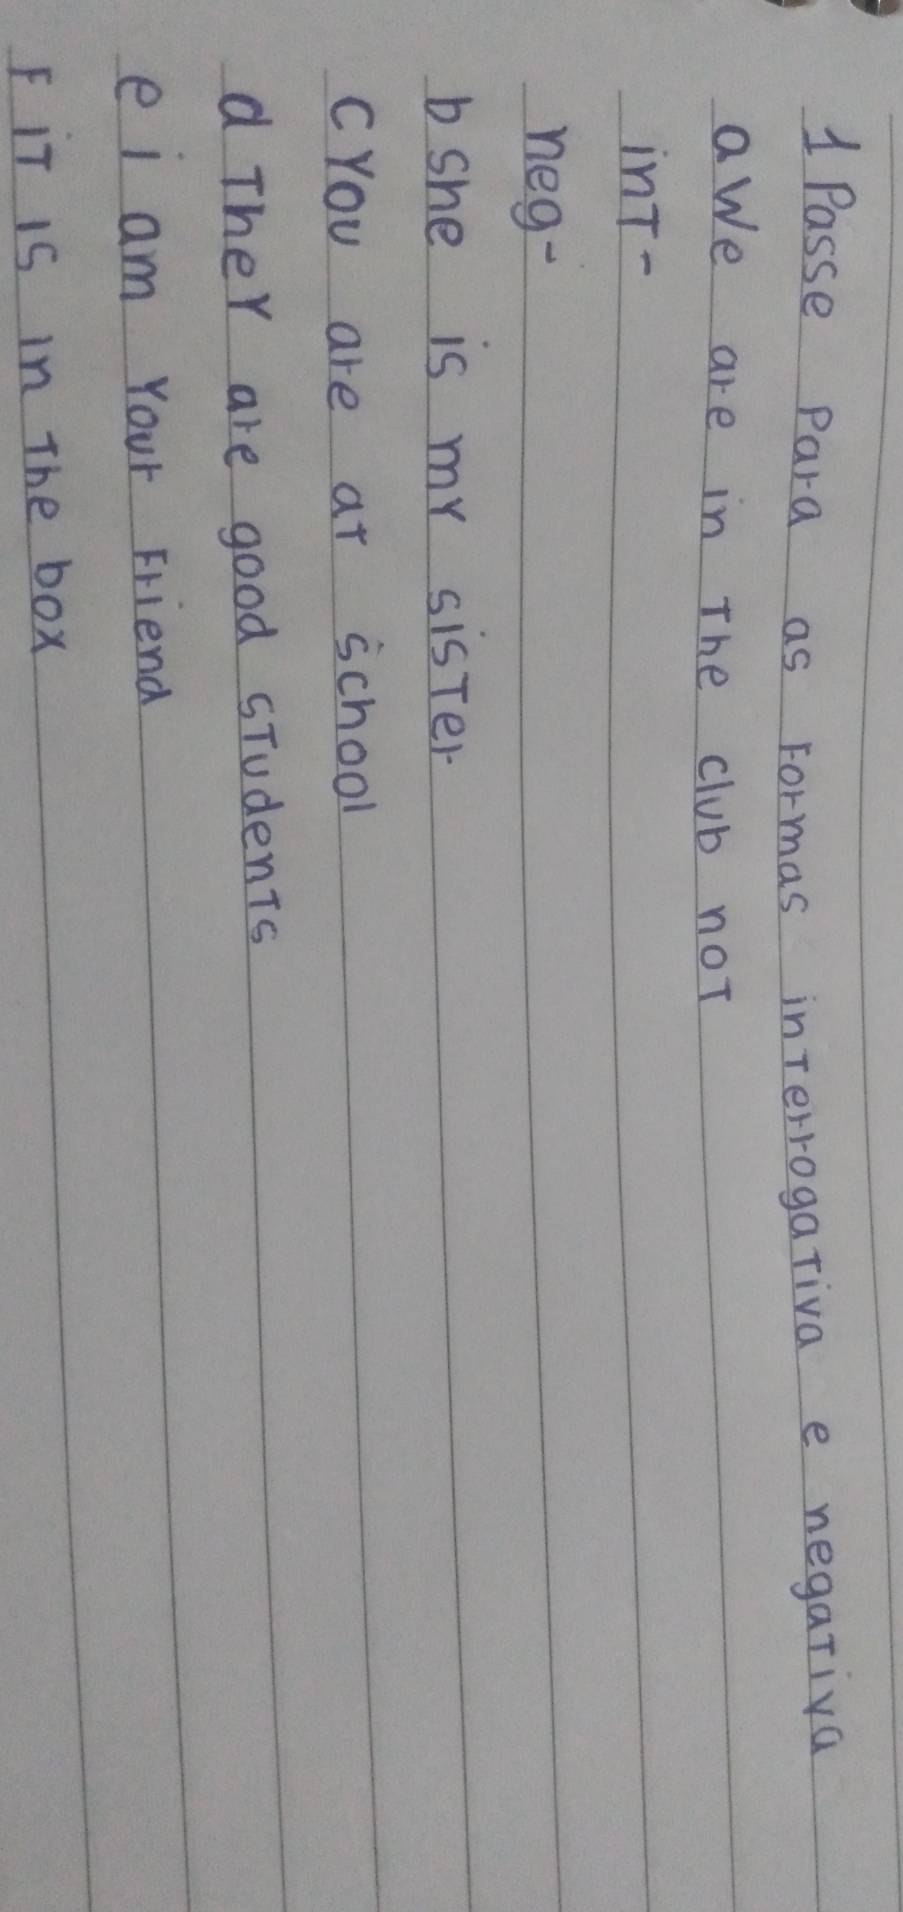 1 Passe Para as Formas interrogativa e negativa
a We are in the club not
int-
neg-
b she is my sister
c You are at school
d They are good students
e i am Your Friend
F it is in the box